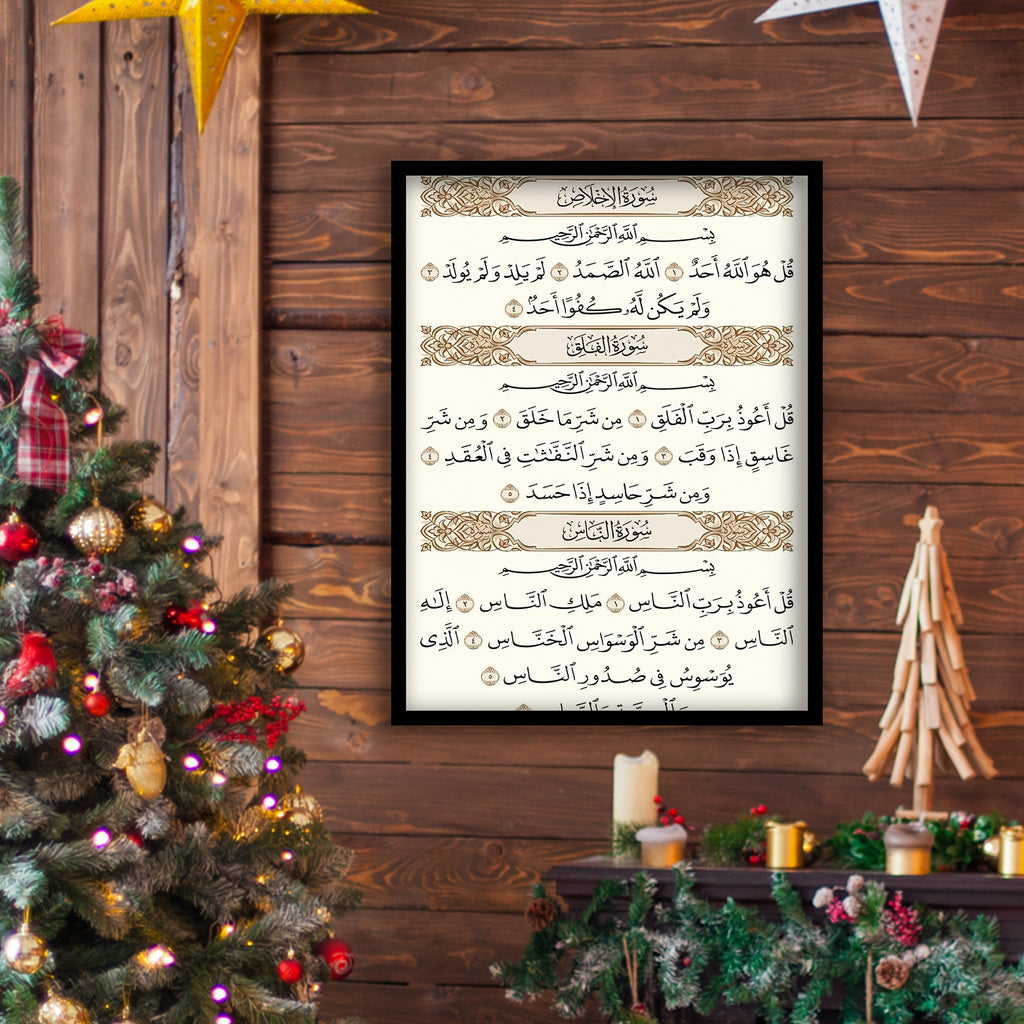 سُورَةُ الإِخْلَاصِ
بِسْمِ ٱللَّهِ ٱلرَّحْمَٰنِ ٱلرَّحِيمِ
قُلْ هُوَ ٱللَّهُ أَحَدٌ ١ ٱللَّهُ ٱلصَّمَدُ ٢ لَمْ يَلِدْ وَلَمْ يُولَدْ ٣
وَلَمْ يَكُن لَّهُۥ كُفُوًا أَحَدٌۢ ٤
سُورَةُ الفَلَقِ
بِسْمِ ٱللَّهِ ٱلرَّحْمَٰنِ ٱلرَّحِيمِ
قُلْ أَعُوذُ بِرَبِّ ٱلْفَلَقِ ١ مِن شَرِّ مَا خَلَقَ ٢ وَمِن شَرِّ
غَاسِقٍ إِذَا وَقَبَ ٣ وَمِن شَرِّ ٱلنَّفَّٰثَٰتِ فِي ٱلْعُقَدِ ٤
وَمِن شَرِّ حَاسِدٍ إِذَا حَسَدَ ٥
سُورَةُ النَّاسِ
بِسْمِ ٱللَّهِ ٱلرَّحْمَٰنِ ٱلرَّحِيمِ
قُلْ أَعُوذُ بِرَبِّ ٱلنَّاسِ ١ مَلِكِ ٱلنَّاسِ ٢ إِلَٰهِ
ٱلنَّاسِ ٣ مِن شَرِّ ٱلْوَسْوَاسِ ٱلْخَنَّاسِ ٤ ٱلَّذِى
يُوَسْوِسُ فِي صُدُورِ ٱلنَّاسِ ٥